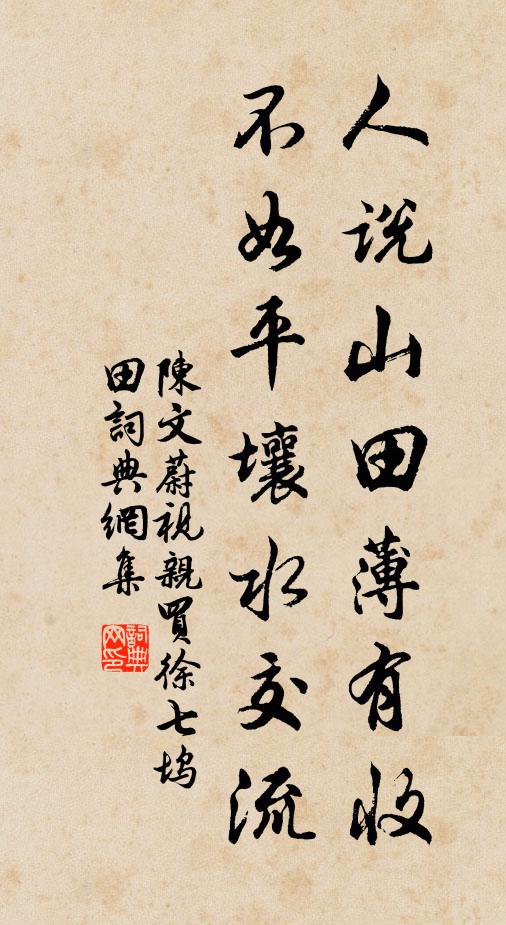 人說山田薄有收
不如平壤水交流
陳文蔚視親買徐七塢
田詞典網集
詞典网印